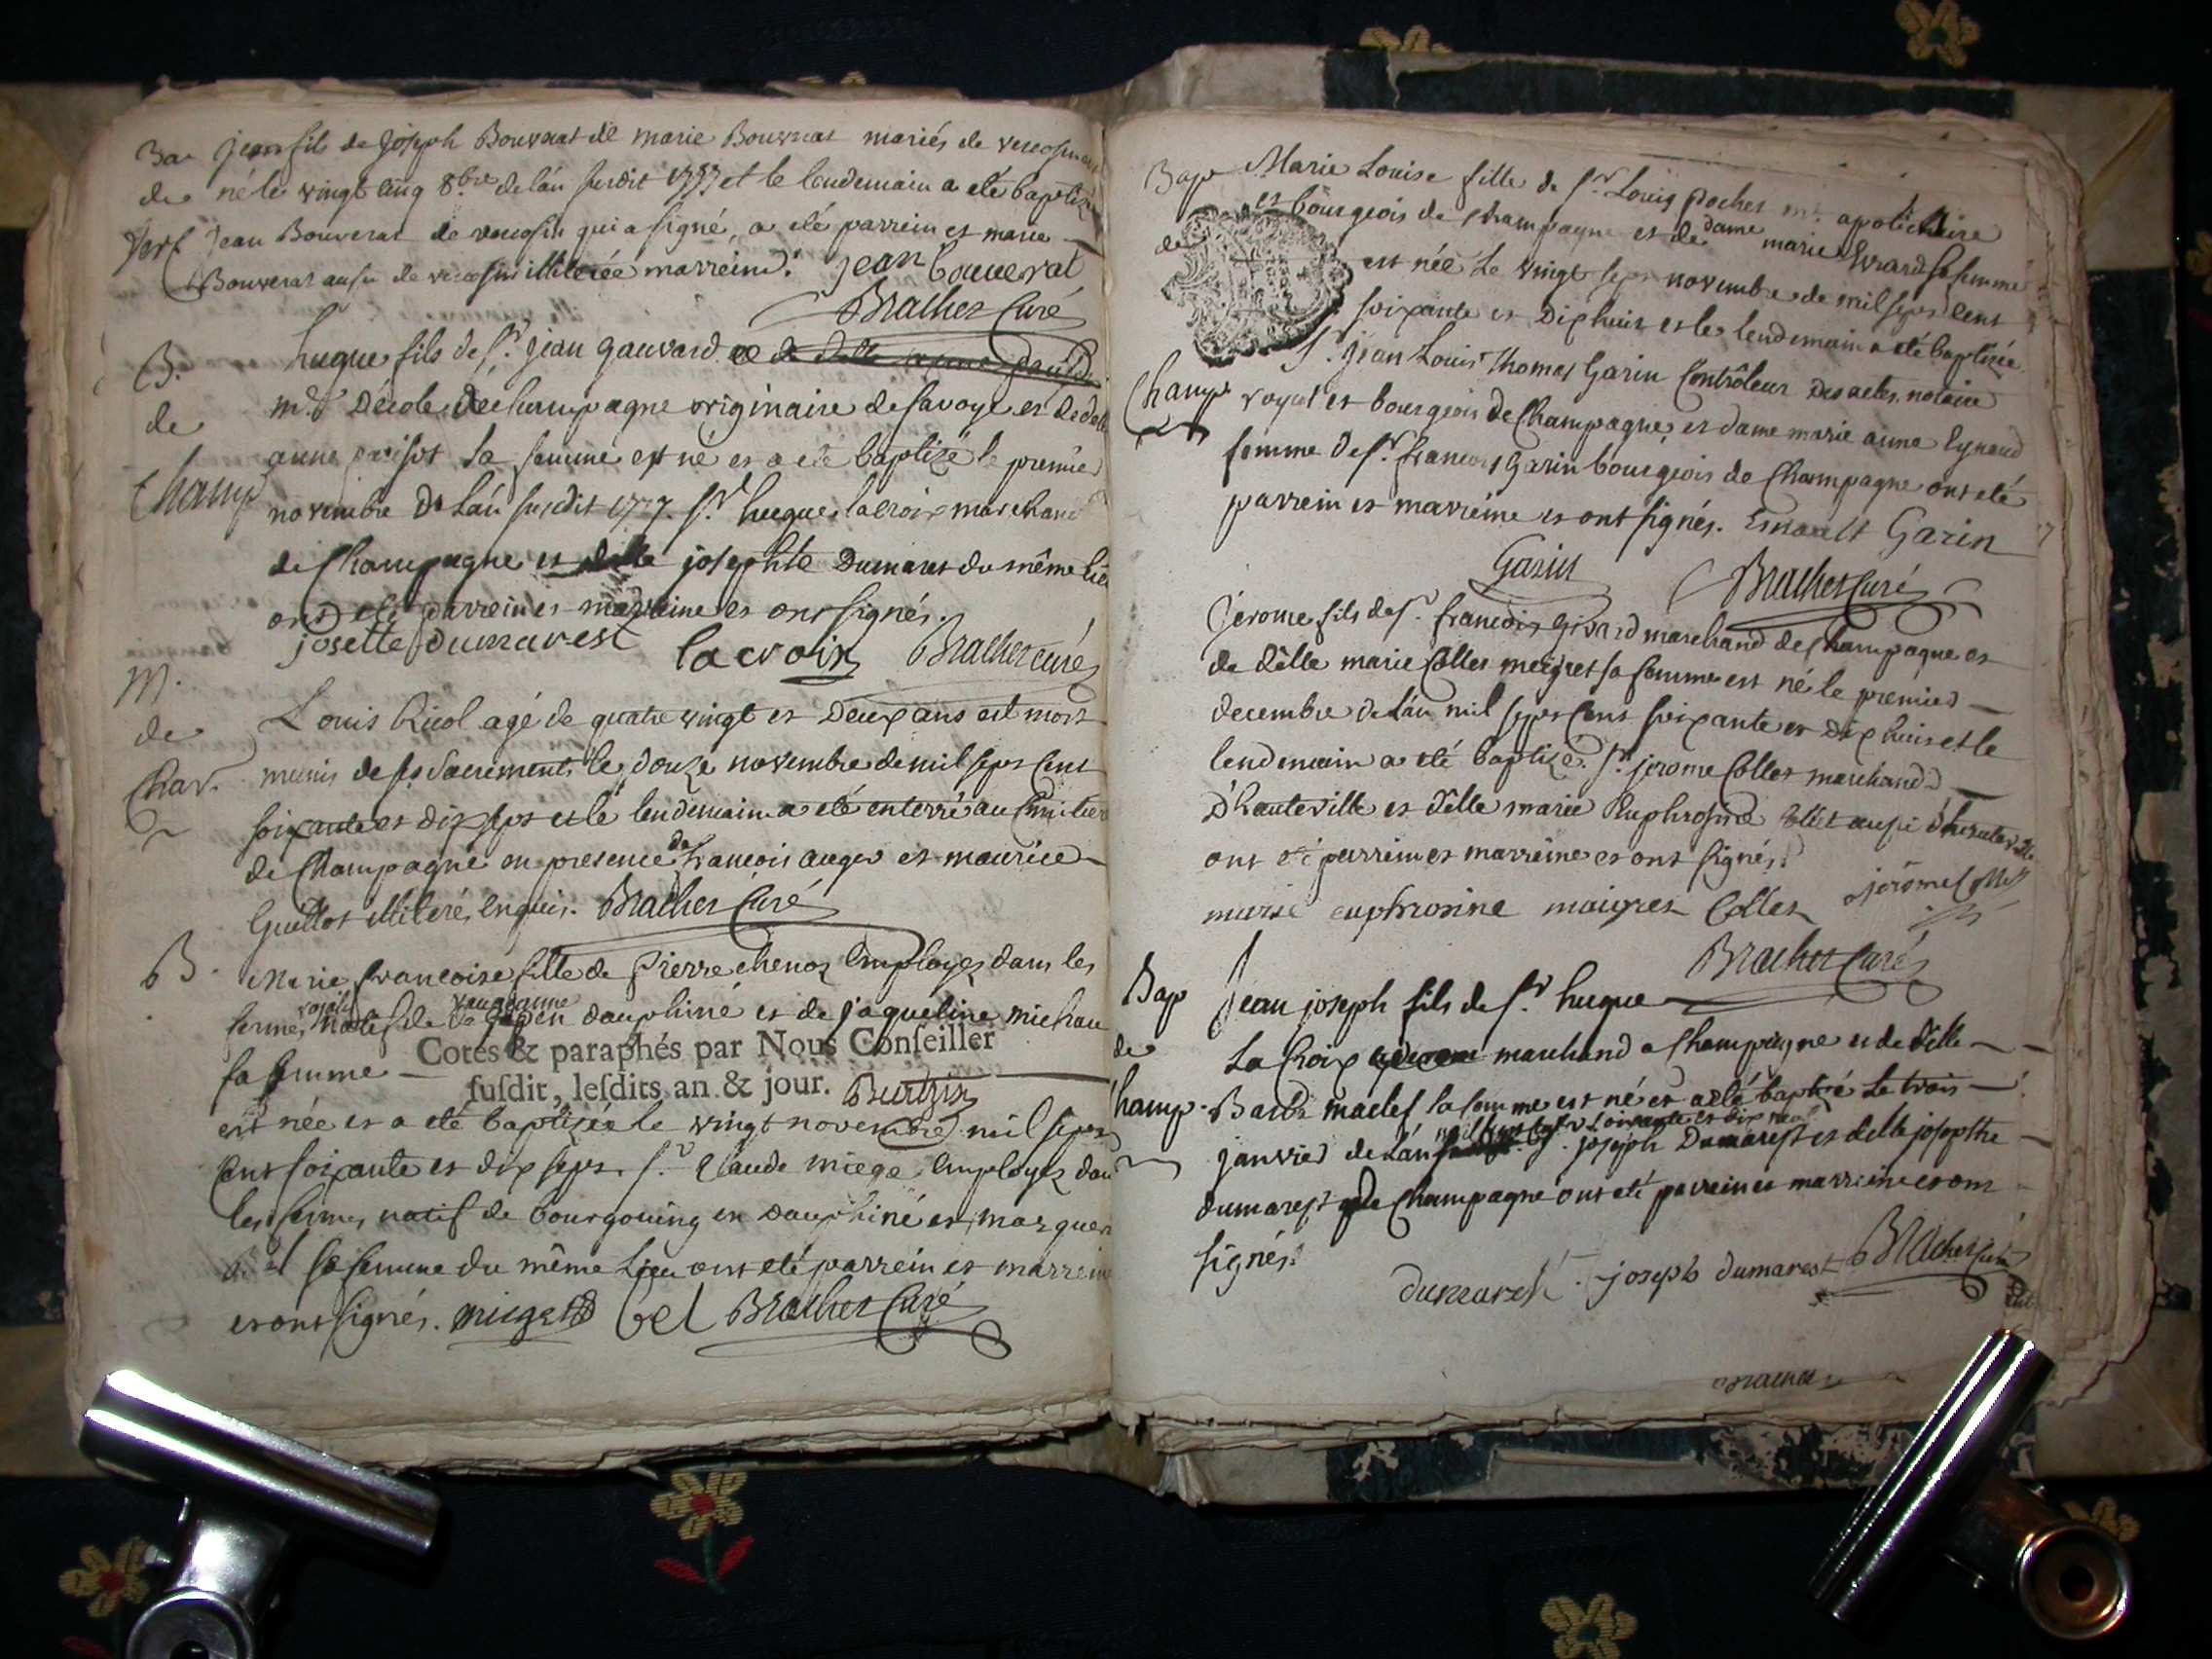 Jean fils de Joseph Bouverat et de marie Bouverat mariés de
né le vingt cinq 8bre de l'an susdit 1777 et le lendemain a été baptizé
Jean Bouverat de qui a signé, a été parrein et marie
Bouverat aussi de illiterée marreine. jean bouverat
Brachet Curé
B.
de
Champ
hugue fils de Sr. jean gauvard et
me d'école de champagne originaire de savoye et de delle
anne sa femme est né et a été baptizé le premier
novembre de l'an susdit 1777. Sr hugue lacroix marchand
de Champagne et delle josephte Dumarest du même lieu
ont été parrein et marreine et ont signés.
josette dumarest lacroix Brachet curé
M.
de
Char.
Louis Ricol agé de quatre vingt et deux ans est mort
munis de ses sacrements le douze novembre de mil sept cent
soixante et dix sept et le lendemain a été enterré au cimitiere
de Champagne en presence de françois auger et maurice
Guillot illiterés enquis. Brachet Curé
B.
Marie françoise fille de Pierre chenoz Employez dans les
fermes royales natif de en dauphiné et de jaqueline michau
sa femme
Cotés & paraphés par Nous Conſeiller
ſuſdit, leſdits an & jour.
est née et a été baptizée le vingt novembre mil sept
cent soixante et dix sept. Sr Claude miege Employez dans
les fermes natif de bourgouing en Dauphiné et
sa femme du même Lieu ont été parrein et marreine
et ont signés. miege Gel Brachet Curé
Bap
de
Champ
Marie Louise fille de Sr Louis Pochet me apoticaire
et bourgeois de champagne et de dame marie Evrard sa femme
est née le vingt sept novembre de mil sept cent
soixante et dix huit et le lendemain a été baptizée
Sr jean Louis Thomas Garin Contrôleur des actes, notaire
royal et bourgeois de Champagne, et dame marie anne
femme de Sr françois Garin bourgeois de Champagne ont été
parrein et marreine et ont signés. Garin
Garin Brachet Curé
jerome fils de Sr. françois Givard marchand de Champagne et
de delle marie Collet meigret sa femme est né le premier
decembre de l'an mil sept cent soixante et dix huit et le
lendemain a été baptizé. Sr jerome Collet marchand
d'hauteville et delle marie Euphrosine aussi d'hauteville
ont été parrein et marreine et ont signés.
marie euphrosine maigret Collet jerome Collet
Brachet Curé
Bap
de
Champ.
Jean joseph fils de Sr hugue
La Croix marchand a Champagne et de delle
sa femme est né et a été baptizé le trois
janvier de l'an mil sept cent soixante et dix neuf Sr. joseph Dumarest et delle josephte
dumarest de Champagne ont été parrein et marreine et ont
signés.
dumarest. joseph dumarest Brachet Curé